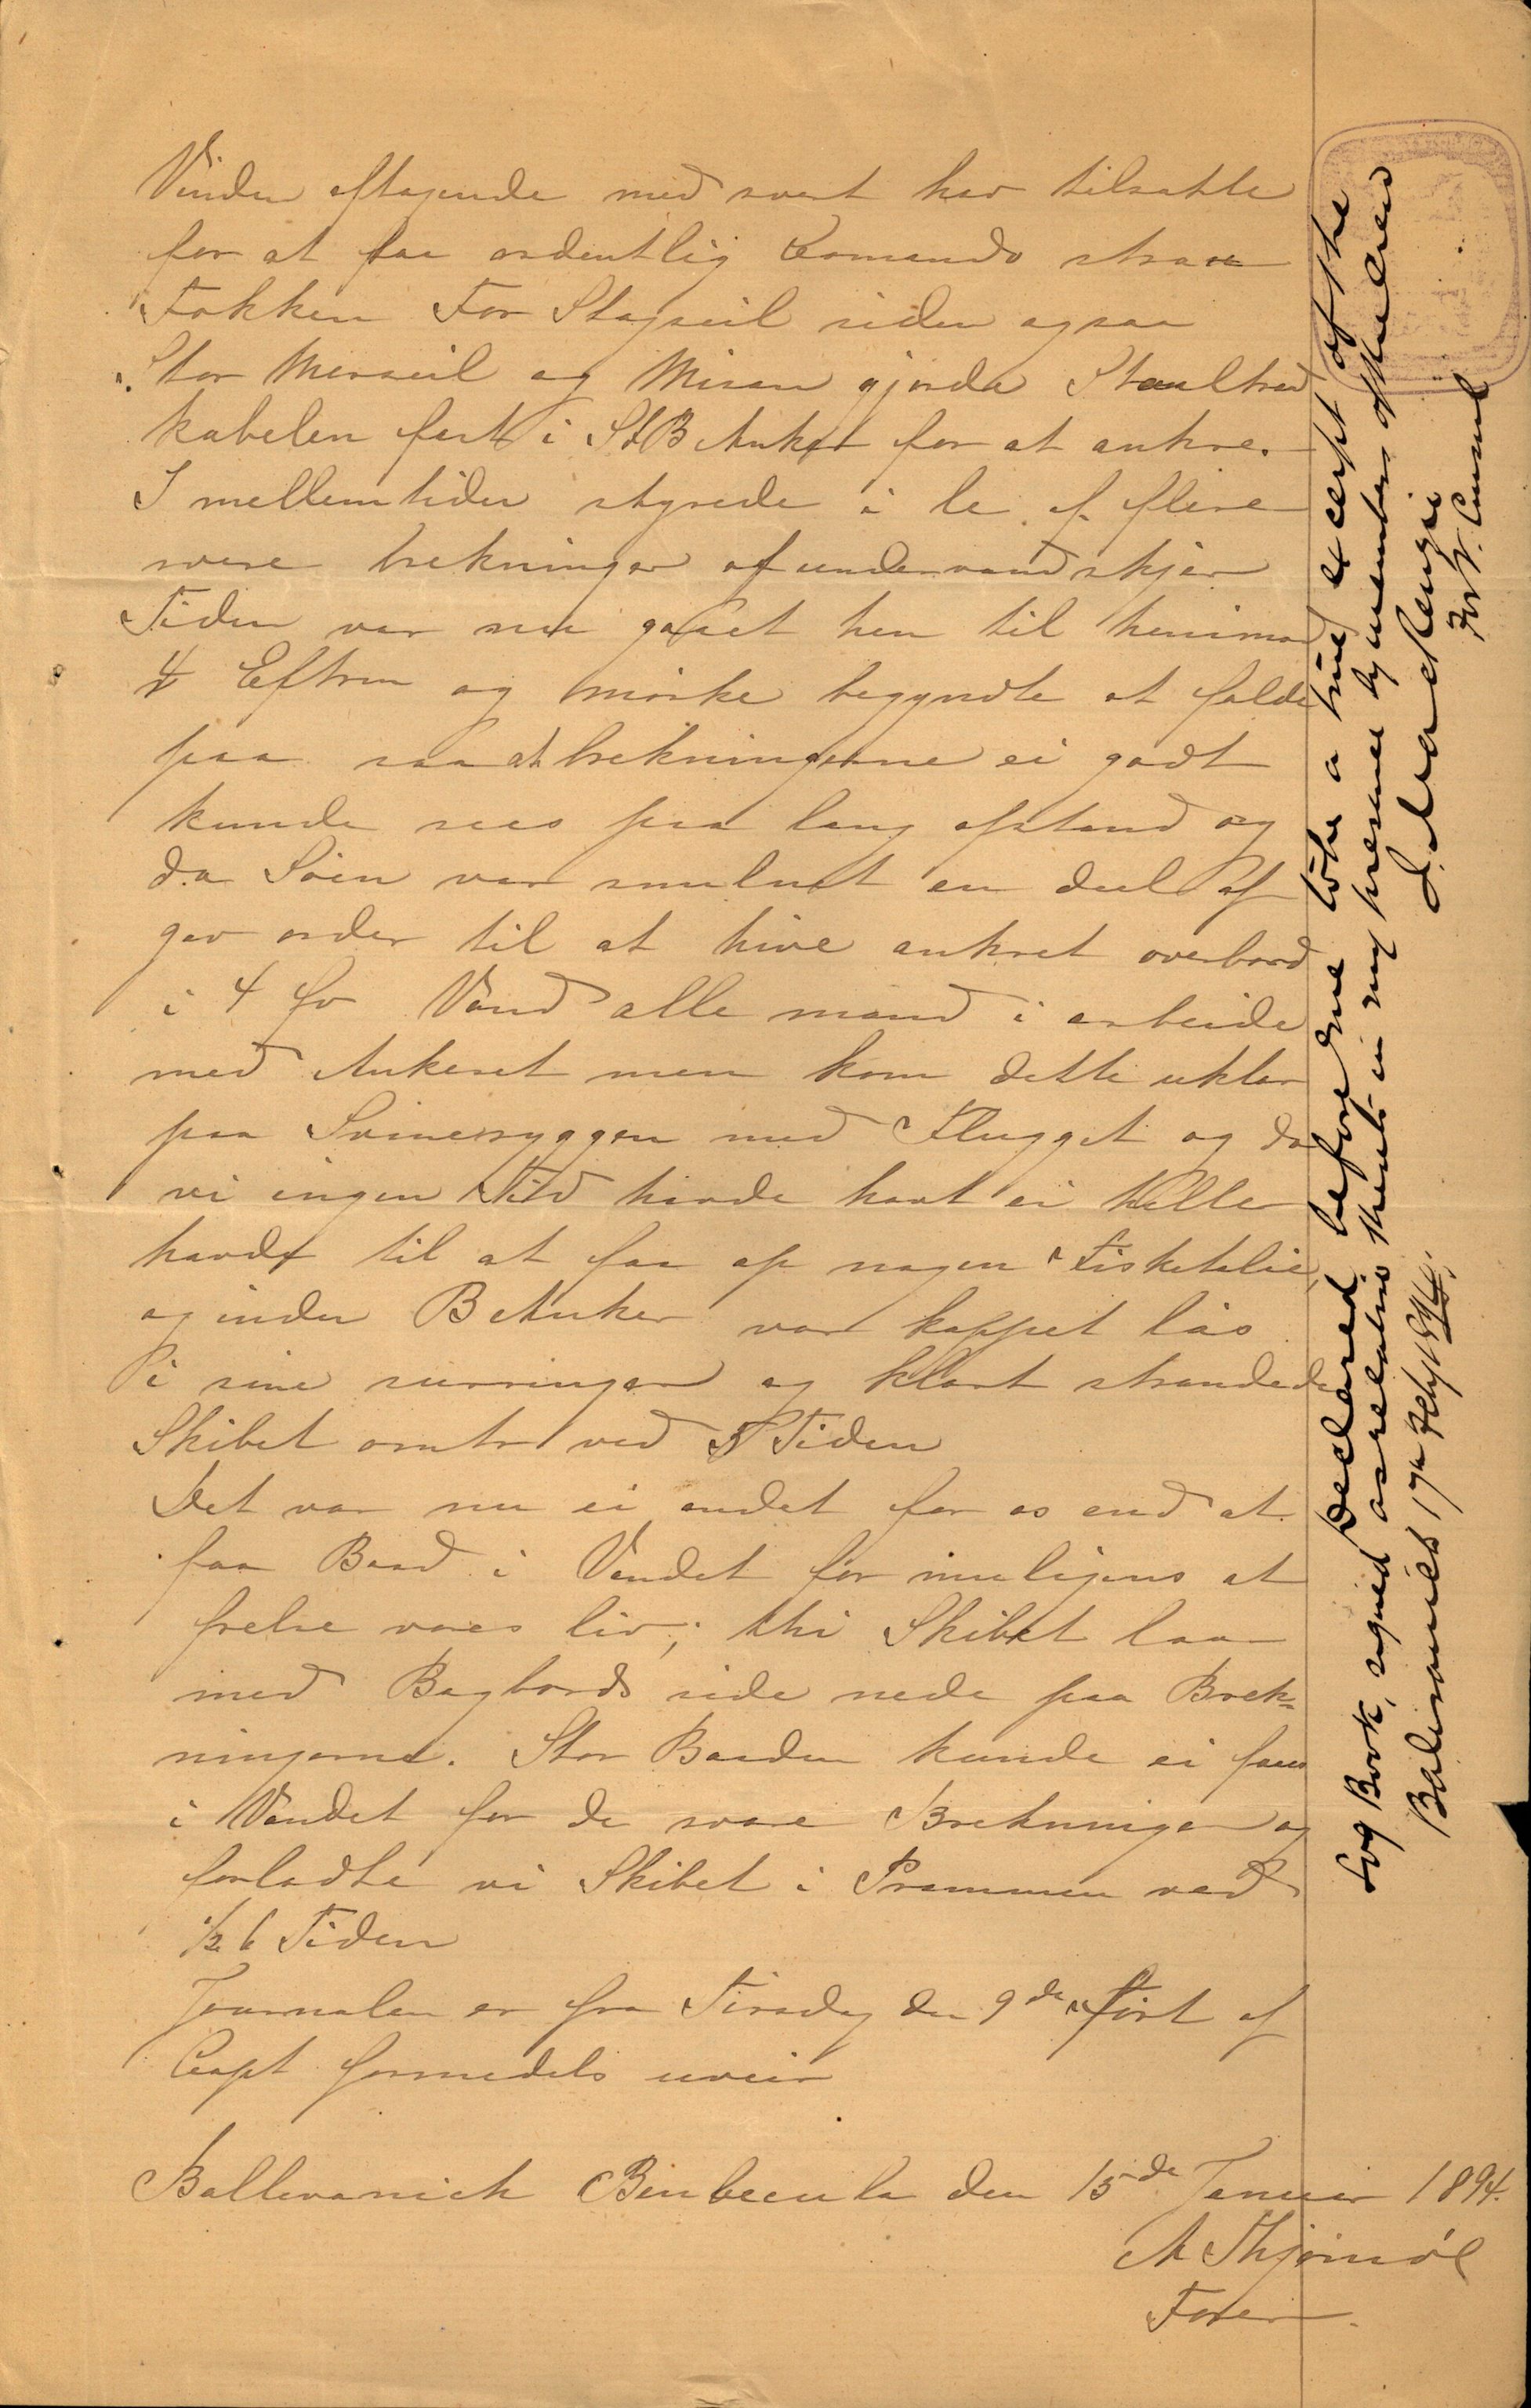 Vinden aftagende med svert hav tilsatte
for at faa ordentlig Comando strax
Fokken For Stagseil siden ogsaa
Stor Merseil og Mesan gjorde Staaltraad
kabelen fast i StB Anker for at ankre.
I mellemtiden styrede i le af flere
svere brekninger af undervandskjær
Tiden var nu gaaet hen til henimod
4 Eftrm og mörke begyndte at falde
paa saa at brekningerne ei godt
kunde sees paa lang afstand og
da Söen var smulnet en deel af
gav order til at hive ankret overbord
i 4 fv Vand alle mand i arbeide
med Ankeret men kom dette uklar
paa Svineryggen med Flugget og da
vi ingen Tid havde havt ei heller
havde til at faa op nogen Fisketalie,
og inden B Anker var kappet lös
i sine surringer og klart strandede
Skibet omtr ved 5 Tiden
Det var nu ei andet for os end at
faa Baad i Vandet for muligens at
frelse vores liv; thi Skibet laa
med Bagbords side nede paa Brek-
ningerne. Stor Baaden kunde ei faaes
i Vandet for de svare Brekninger og
forladte vi Skibet i Prammen ved
1/2 6 Tiden
Journalen er fra Tirsdag den 9de fört af
Capt formedels uveir
Ballevanich Benbecula den 15de Januar 1894.
Förer
Declared before me to be a true excerpt of the
Log Book, signed as relative thereto in my presence by members of the crew
Balivanich 17th Feby 1894.
J. MacKenzie
for V. Consul